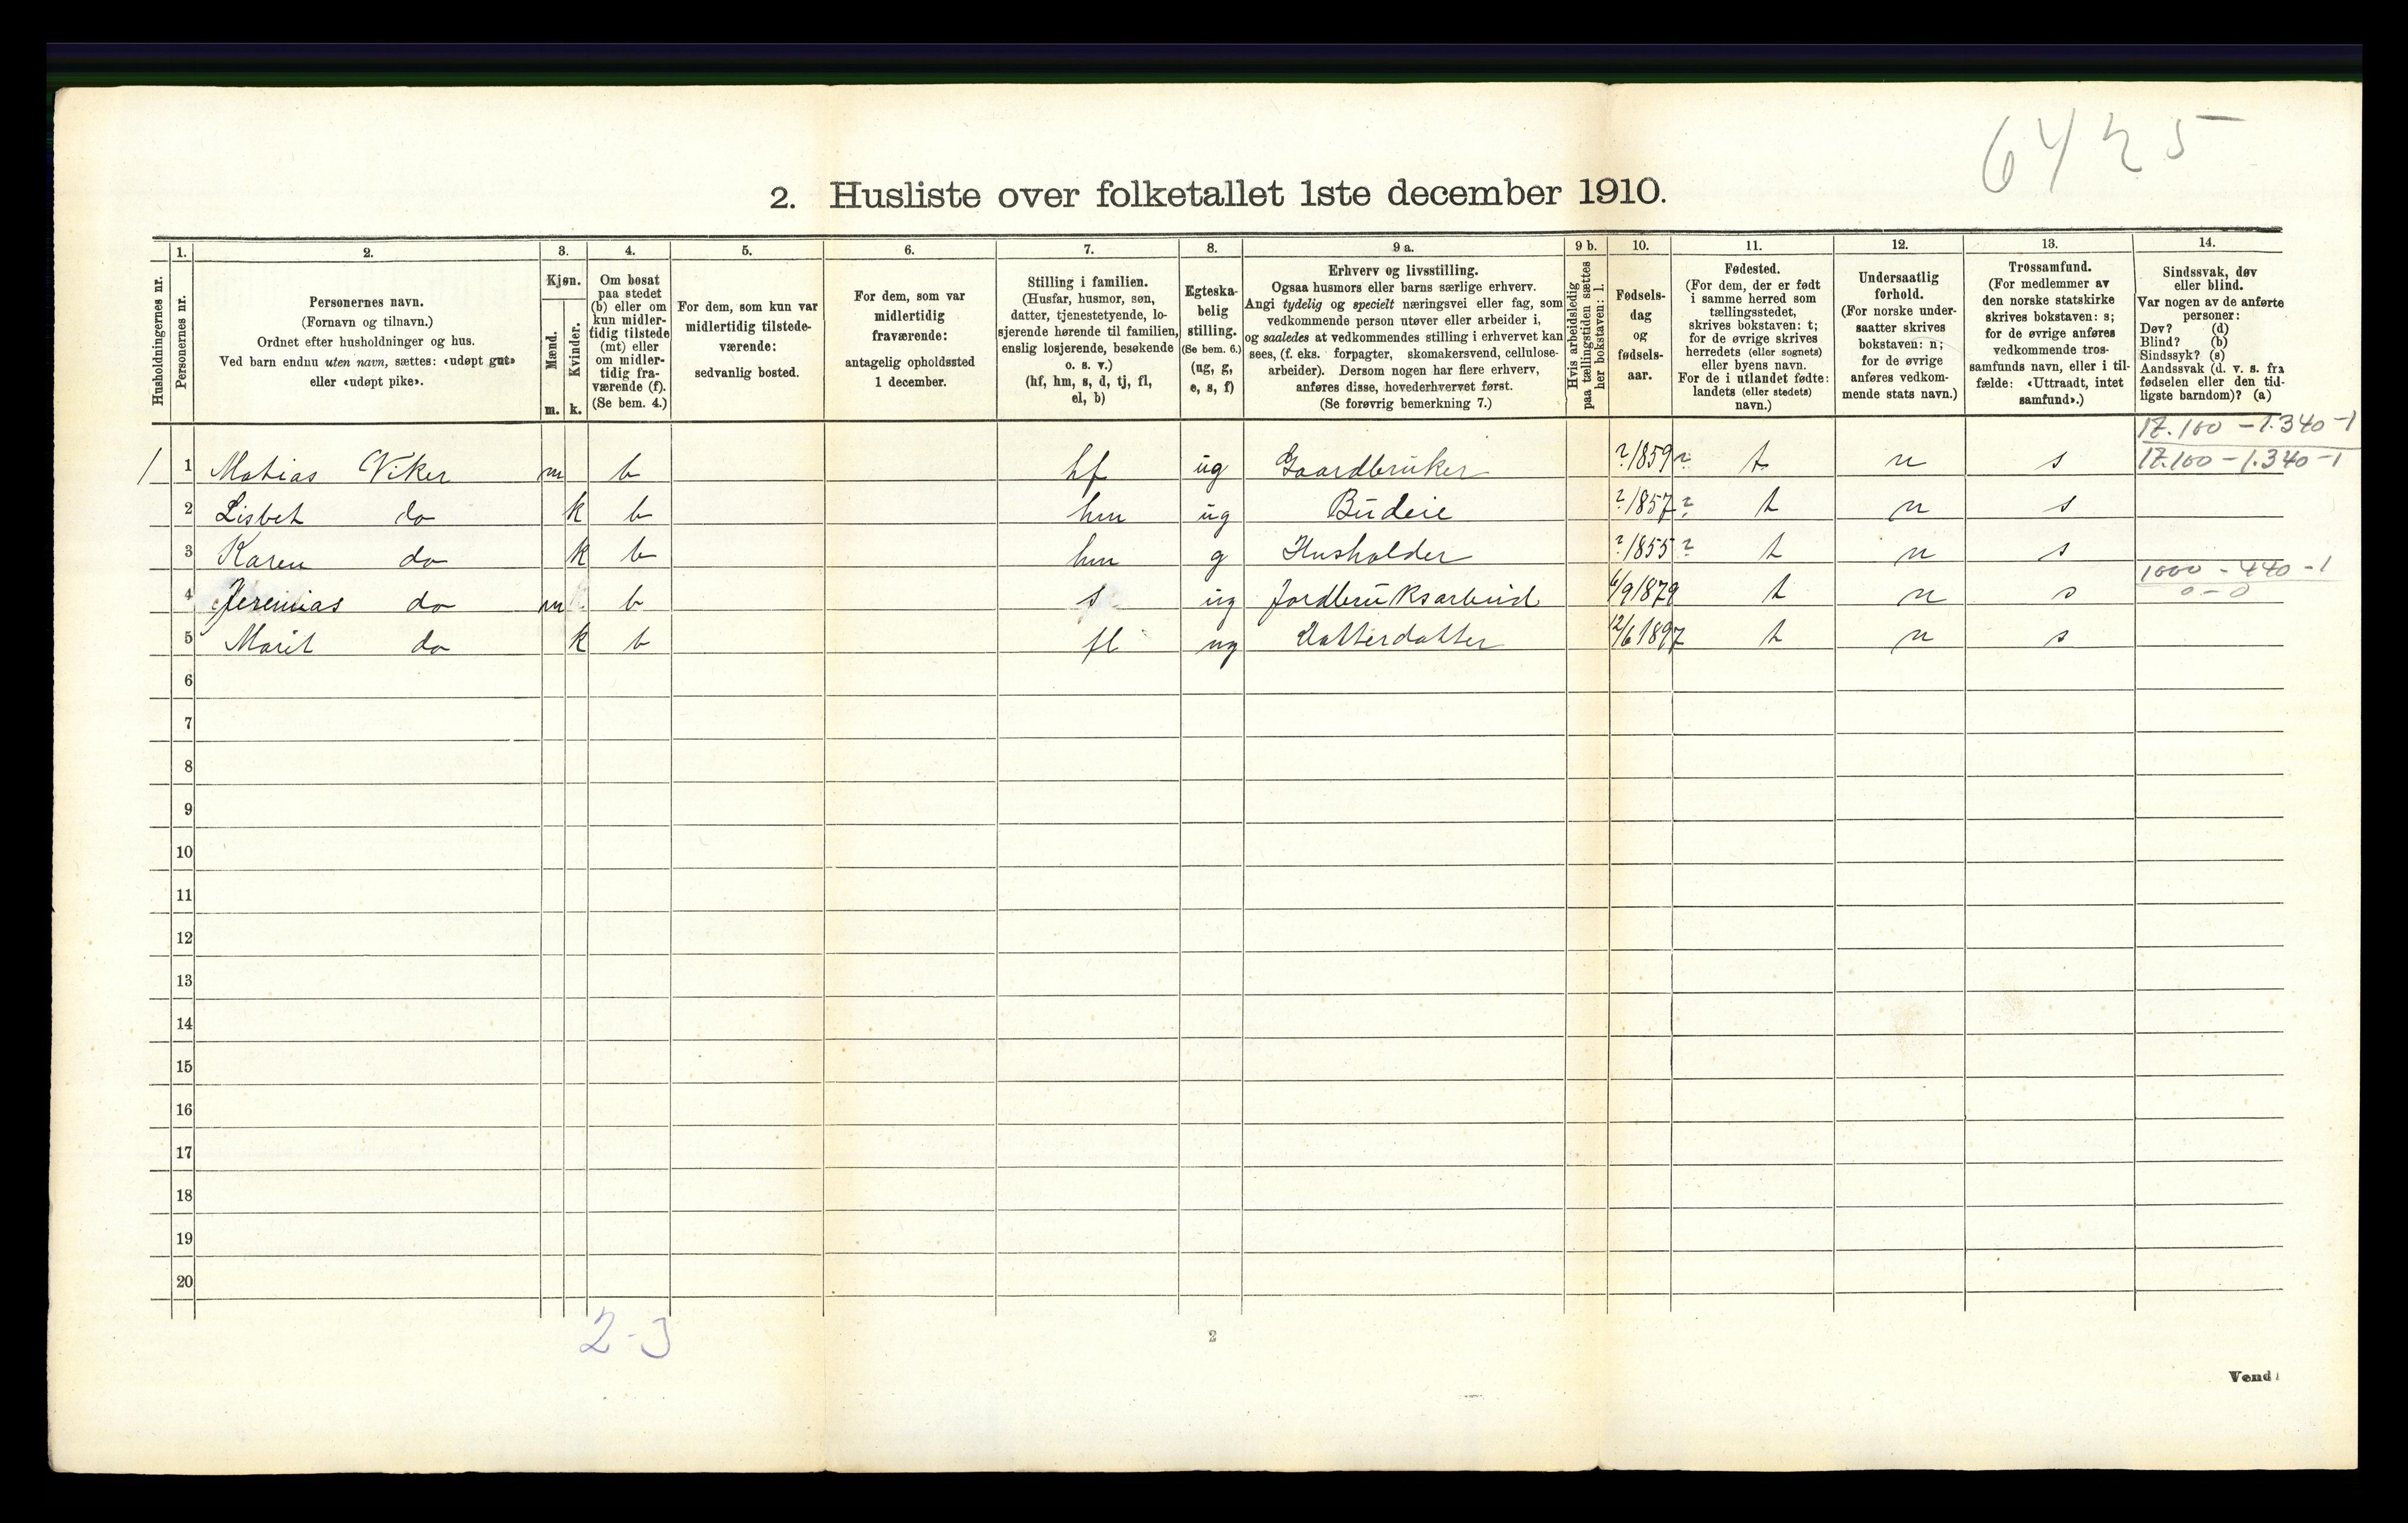 6425
2. Husliste over folketallet 1ste december 1910.
Husholdningernes nr.
1.
Personernes nr.
2.
Personernes navn.
(Fornavn og tilnavn.)
Ordnet efter husholdninger og hus.
Ved barn endnu uten navn, sættes: «udøpt gut»
eller «udøpt pike».
3.
Kjøn.
Mænd.
Kvinder.
m. k.
4.
Om bosat
paa stedet
(b) eller om
kun midler-
tidig tilstede
(mt) eller
om midler-
tidig fra-
værende (f).
(Se bem. 4.)
5.
For dem, som kun var
midlertidig tilstede-
værende:
sedvanlig bosted.
6.
For dem, som var
midlertidig
fraværende:
antagelig opholdssted
1 december.
7.
Stilling i familien.
(Husfar, husmor, søn,
datter, tjenestetyende, lo-
sjerende hørende til familien,
enslig losjerende, besøkende
o. s. v.)
(hf, hm, s, d, tj, fl,
el, b)
8.
Egteska-
belig
stilling.
(Se bem. 6.)
(ug, g,
e, s, f)
9 a.
Erhverv og livsstilling.
Ogsaa husmors eller barns særlige erhverv.
Angi tydelig og specielt næringsvei eller fag, som
vedkommende person utøver eller arbeider i,
og saaledes at vedkommendes stilling i erhvervet kan
sees, (f. eks. forpagter, skomakersvend, cellulose-
arbeider). Dersom nogen har flere erhverv,
anføres disse, hovederhvervet først.
(Se forøvrig bemerkning 7.)
9 b.
Hvis arbeidsledig
paa tællingstiden sættes
her bokstaven: l.
10.
Fødsels-
dag
og
fødsels-
aar.
11.
Fødested.
(For dem, der er født
i samme herred som
tællingsstedet,
skrives bokstaven: t;
for de øvrige skrives
herredets (eller sognets)
eller byens navn.
For de i utlandet fødte:
landets (eller stedets)
navn.)
12.
Undersaatlig
forhold.
(For norske under-
saatter skrives
bokstaven: n;
for de øvrige
anføres vedkom-
mende stats navn.)
13.
Trossamfund.
(For medlemmer av
den norske statskirke
skrives bokstaven: s;
for de øvrige anføres
vedkommende tros-
samfunds navn, eller i til-
fælde: «Uttraadt, intet
samfund».)
14.
Sindssvak, døv
eller blind.
Var nogen av de anførte
personer:
Døv? (d)
Blind? (b)
Sindssyk? (s)
Aandssvak (d. v. s. fra
fødselen eller den tid-
ligste barndom)? (a)
17.100 - 1.340 - 1
1 1 Matias Viker m b hf ug Gaardbruker ? 1859 ? t n s 17.100 - 1.340 - 1
2 Lisbet do k b hm ug Budeie ? 1857 ? t n s
3 Karen do k b hm g Husholder ? 1855 ? t n s
1000 - 440 - 1
4 Jeremias do m b s ug Jordbruksarbeid 6/9 1879 t n s 0 - 0
5 Marit do k b fl ug Datterdatter 12/6 1897 t n s
6
7
8
9
10
11
12
13
14
15
16
17
18
19
20
2-3
2
Vend!